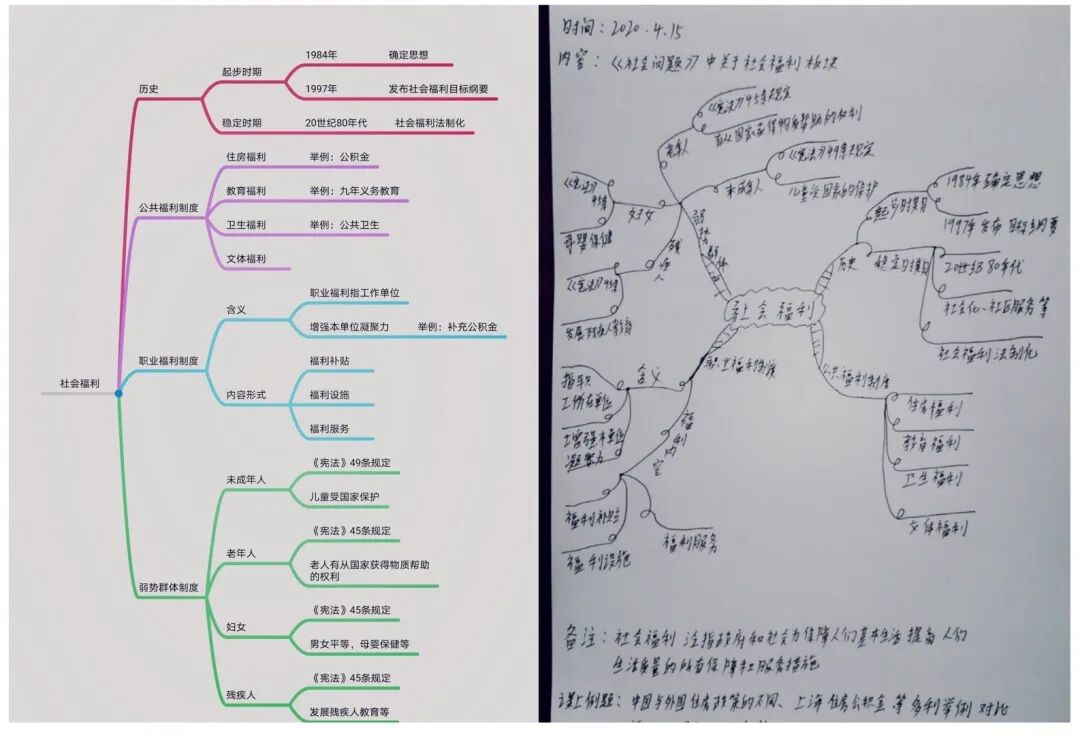 社会福利
历史
起步时期
1984年 确定思想
1997年 发布社会福利目标纲要
稳定时期 20世纪80年代 社会福利法制化
公共福利制度
住房福利 举例：公积金
教育福利 举例：九年义务教育
卫生福利 举例：公共卫生
文体福利
职业福利制度
含义
职业福利指工作单位
增强本单位凝聚力 举例：补充公积金
内容形式
福利补贴
福利设施
福利服务
弱势群体制度
未成年人
《宪法》49条规定
儿童受国家保护
老年人
《宪法》45条规定
老人有从国家获得物质帮助
的权利
妇女
《宪法》45条规定
男女平等，母婴保健等
残疾人
《宪法》45条规定
发展残疾人教育等
时间：2020.4.15
内容：《社会问题》中关于社会福利板块
社会福利
弱势群体
老年人
《宪法》45条规定
有从国家获得物质帮助的权利
未成年人
《宪法》49条规定
儿童受国家的保护
妇女
《宪法》
45条
母婴保健
残疾人
《宪法》45条
历史
起步时期
1984年确定思想
1997年发布目标纲要
稳定时期
20世纪80年代
社会化、社区服务等
社会福利法制化
公共福利制度
住房福利
教育福利
卫生福利
文体福利
职业福利制度
含义
工所在单位
增强本单位
凝聚力
福利
福利补贴
福利设施
福利服务
备注：社会福利泛指政府和社会为保障人们基本生活提高人们
生活质量的所有保障和服务措施
课上例题：中国与外国住房政策的不同、上海住房公积金等多利举例对比